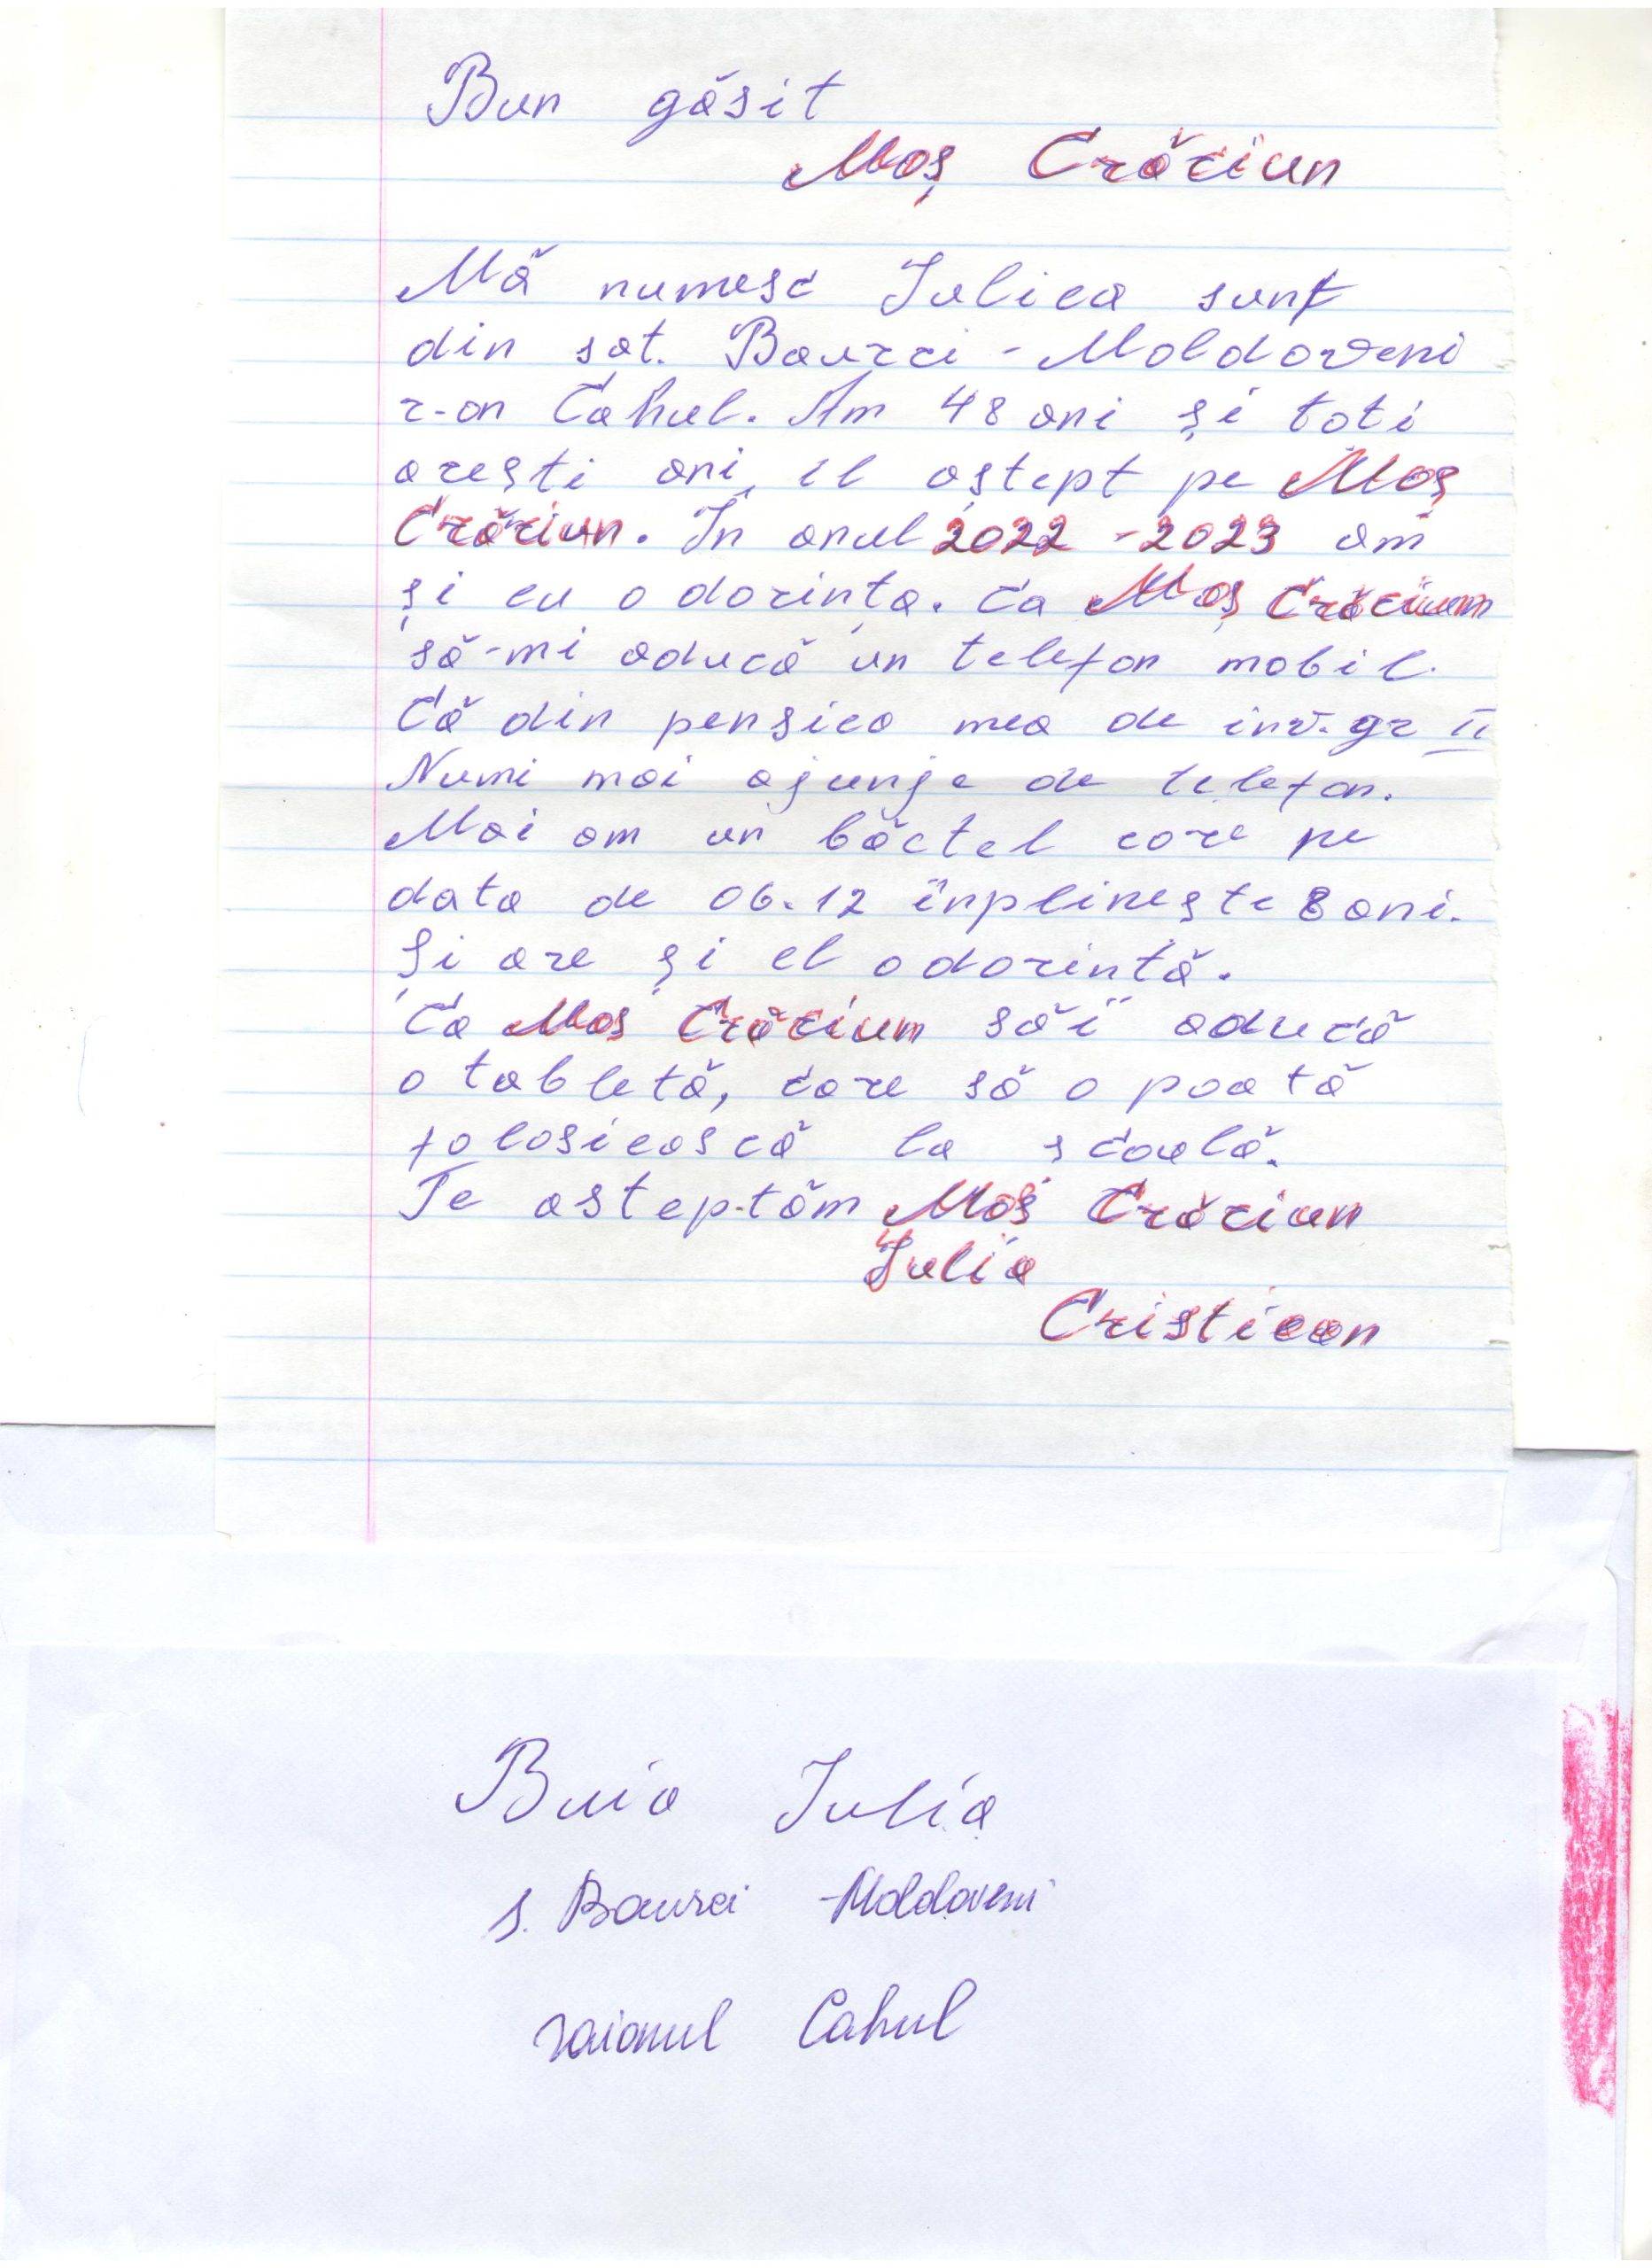 Bun găsit
Moș Crăciun
Mă numesc Iuliea sunt
din sat. Baurci - Moldoveni
r-on Cahul. Am 48 ani și toti
acești ani îl aștept pe Moș
Crăciun. În anul 2022 - 2023 am
și eu o dorința. Ca Moș Crăciunm
să-mi aducă un telefon mobil.
Că din pensiea mea de inv. gr II
Numi mai ajunje de telefon.
Mai am un băetel care pe
data de 06.12 înplinește 8 ani.
Și are și el o dorintă.
Ca Mos Crăciunm săi aducă
o tabletă, care să o poată
folosieoscă la scoală.
Te asteptăm Moș Crăciun
Iulia
Cristiean
Buia Iulia
s. Baurci - Moldoveni
raionul Cahul